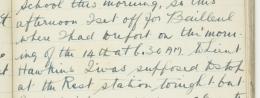 School this morning, so this
afternoon I set off for Bailleul
where I had to report on this morn-
ing of the 14th at 6.30 AM. Lieut
Hawkins I was supposed to stop
at the Rest station tonight but